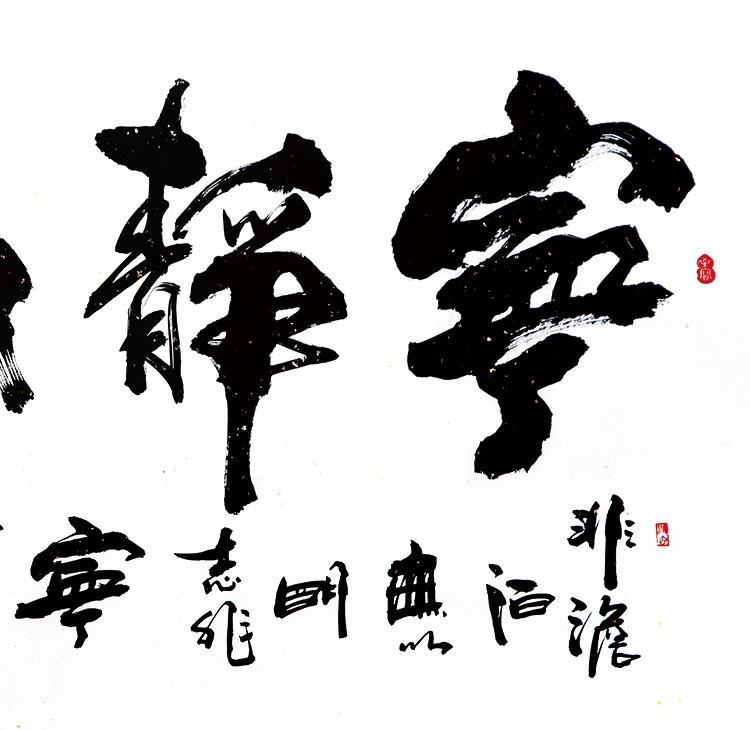 寧靜
非澹
泊
無以
明
志非
寧